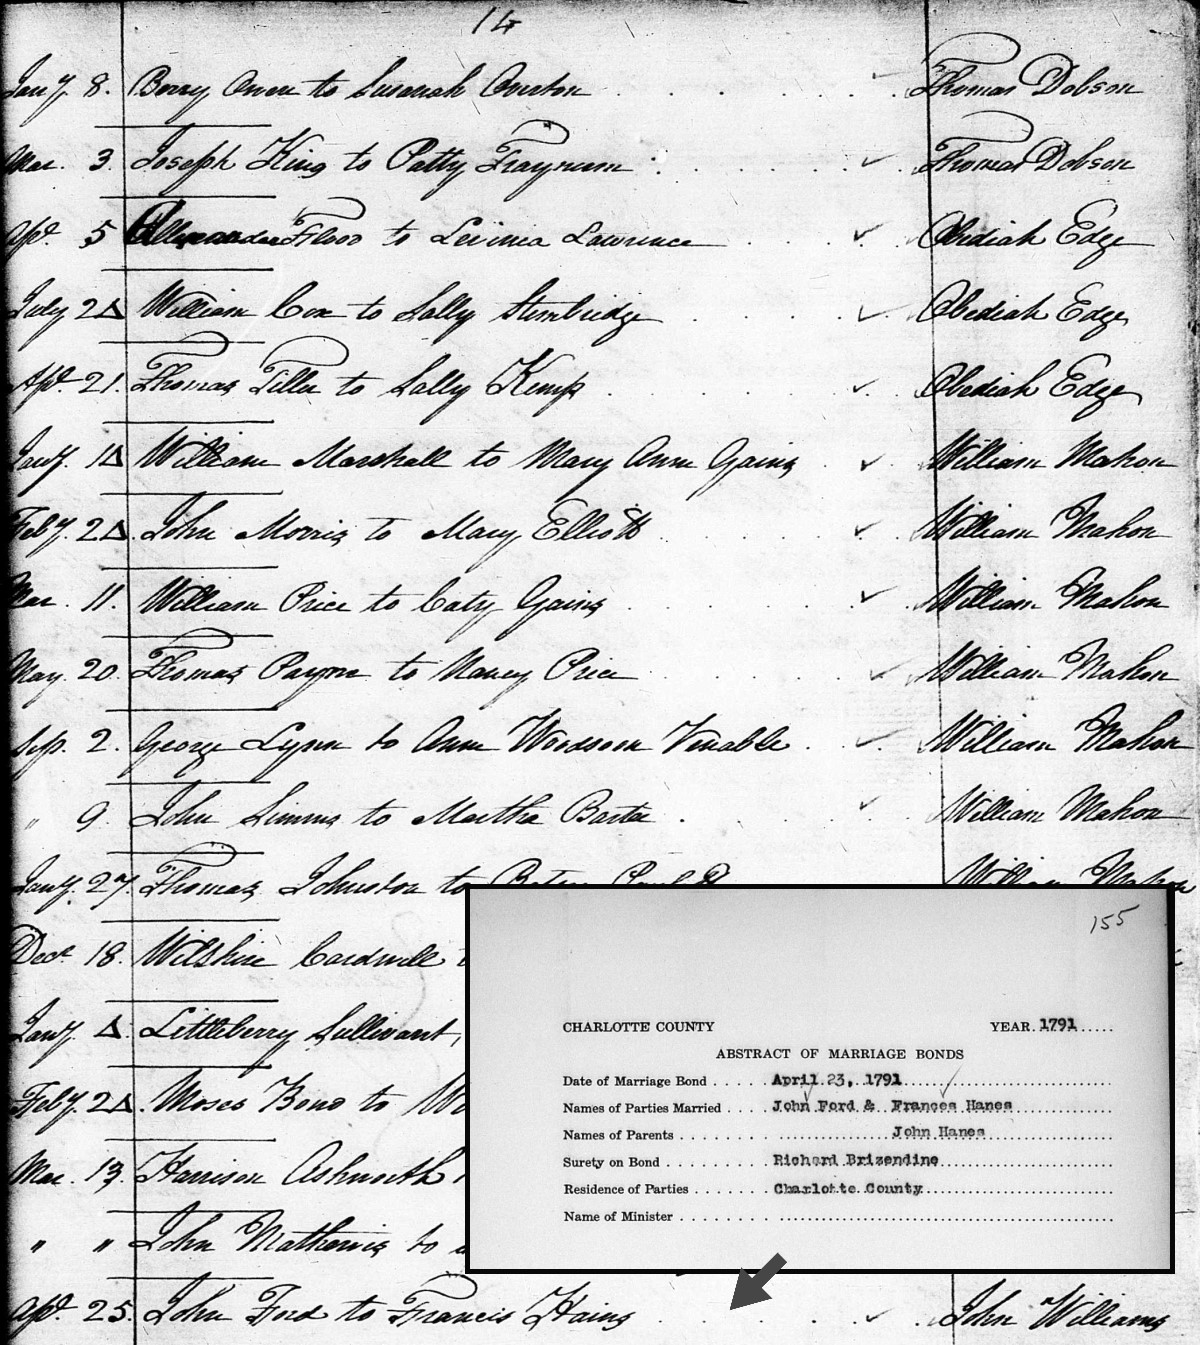 14
Jany. 8. Berry Owen to Susanah Overton Thomas Dobson
Mar. 3. Joseph King to Patty Fraynum Thomas Dobson
Apl. 5 Allexander Flood to Levinia Lawrence Obediah Edge
July 24 William Cox to Sally Stembridge Obediah Edge
Apl. 21. Thomas Tiller to Sally Kemp Obediah Edge
Jany. 14 William Marshall to Mary Ann Gains William Mahon
Feby. 24. John Morris to Mary Elliott William Mahon
Mar. 11. William Price to Caty Gains William Mahon
May. 20. Thomas Payne to Nancy Price William Mahon
Sep. 2. George Lynn to Ann Woodson Venable William Mahon
" 9 John Simms to Martha Barter William Mahon
Jany. 27. Thomas Johnston to Betsy William Mahon
Decr. 18. Wilshire Cardwell
Jany. 4. Littleberry Sullivant,
Feby. 24. Moses Bond to
Mar. 13. Harrison Ashworth
" " John Mathewis to
Apl. 25. John Ford to Francis Hains John Williams
155
CHARLOTTE COUNTY YEAR 1791
ABSTRACT OF MARRIAGE BONDS
Date of Marriage Bond April 23, 1791
Names of Parties Married John Ford & Frances Hanes
Names of Parents John Hanes
Surety on Bond Richard Brizendine
Residence of Parties Charlotte County
Name of Minister